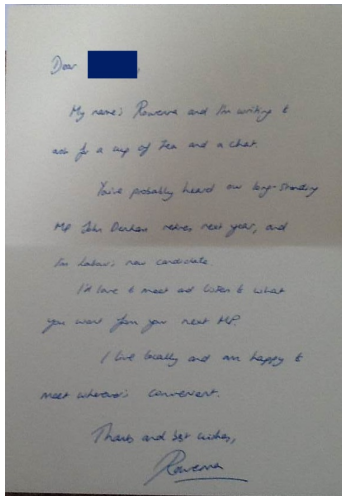 Dear
My name's Rowenna and I'm writing to
ask for a cup of tea and a chat.
You've probably heard our long-standing
MP John Denham retires next year, and
I'm Labour's new candidate
I'd love to meet and listen to what
you want from your next MP.
I live locally and am happy to
meet wherever's convenient.
Thanks and best wishes,
Rowenna